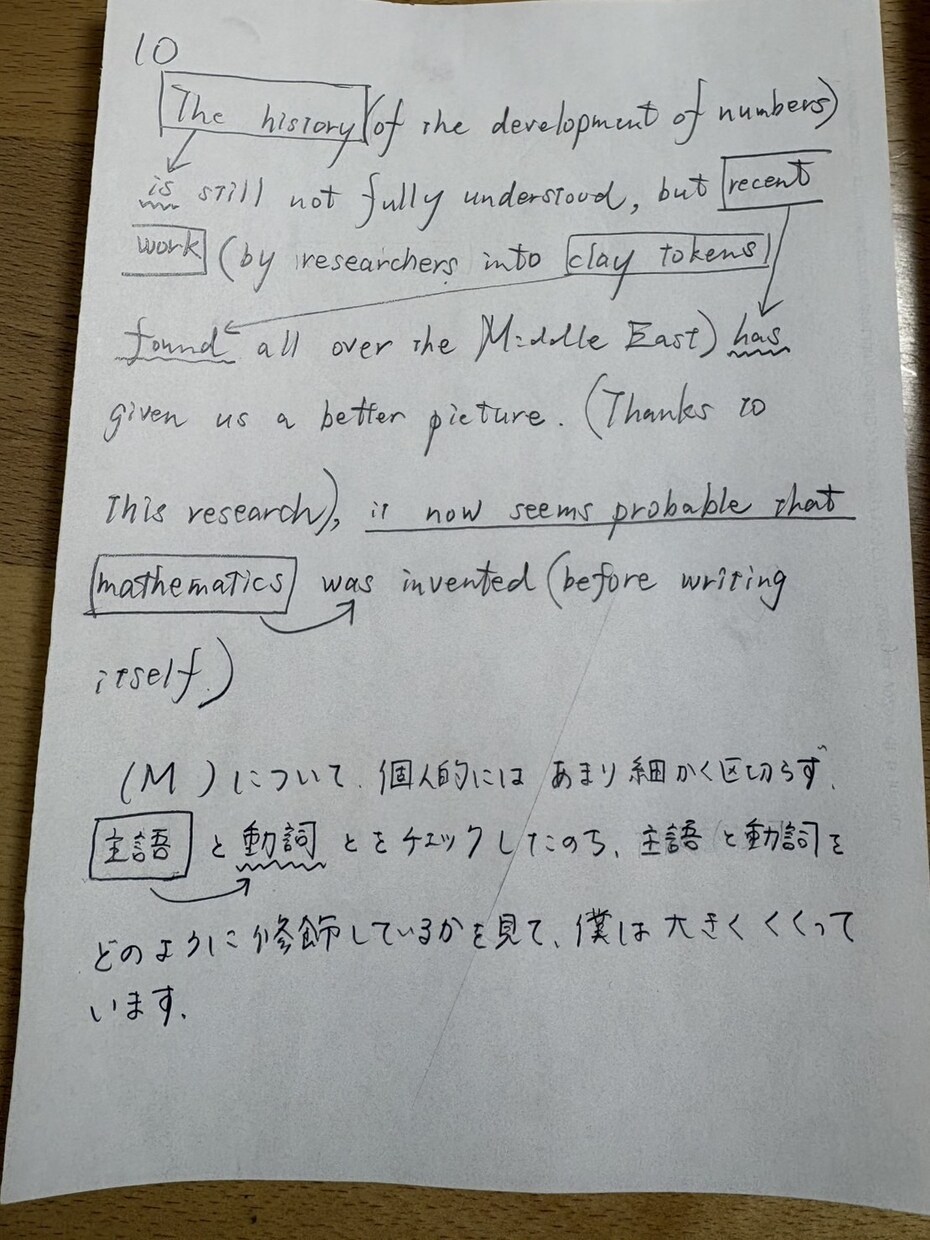 10
The history (of the development of numbers)
is still not fully understood, but recent
work (by researchers into clay tokens
found all over the Middle East) has
given us a better picture. (Thanks to
this research), it now seems probable that
mathematics was invented (before writing
itself.)
(M )について、個人的にはあまり細かく区切らず、
主語と動詞とをチェックしたのち、主語と動詞を
どのように修飾しているかを見て、僕は大きくくくって
います。